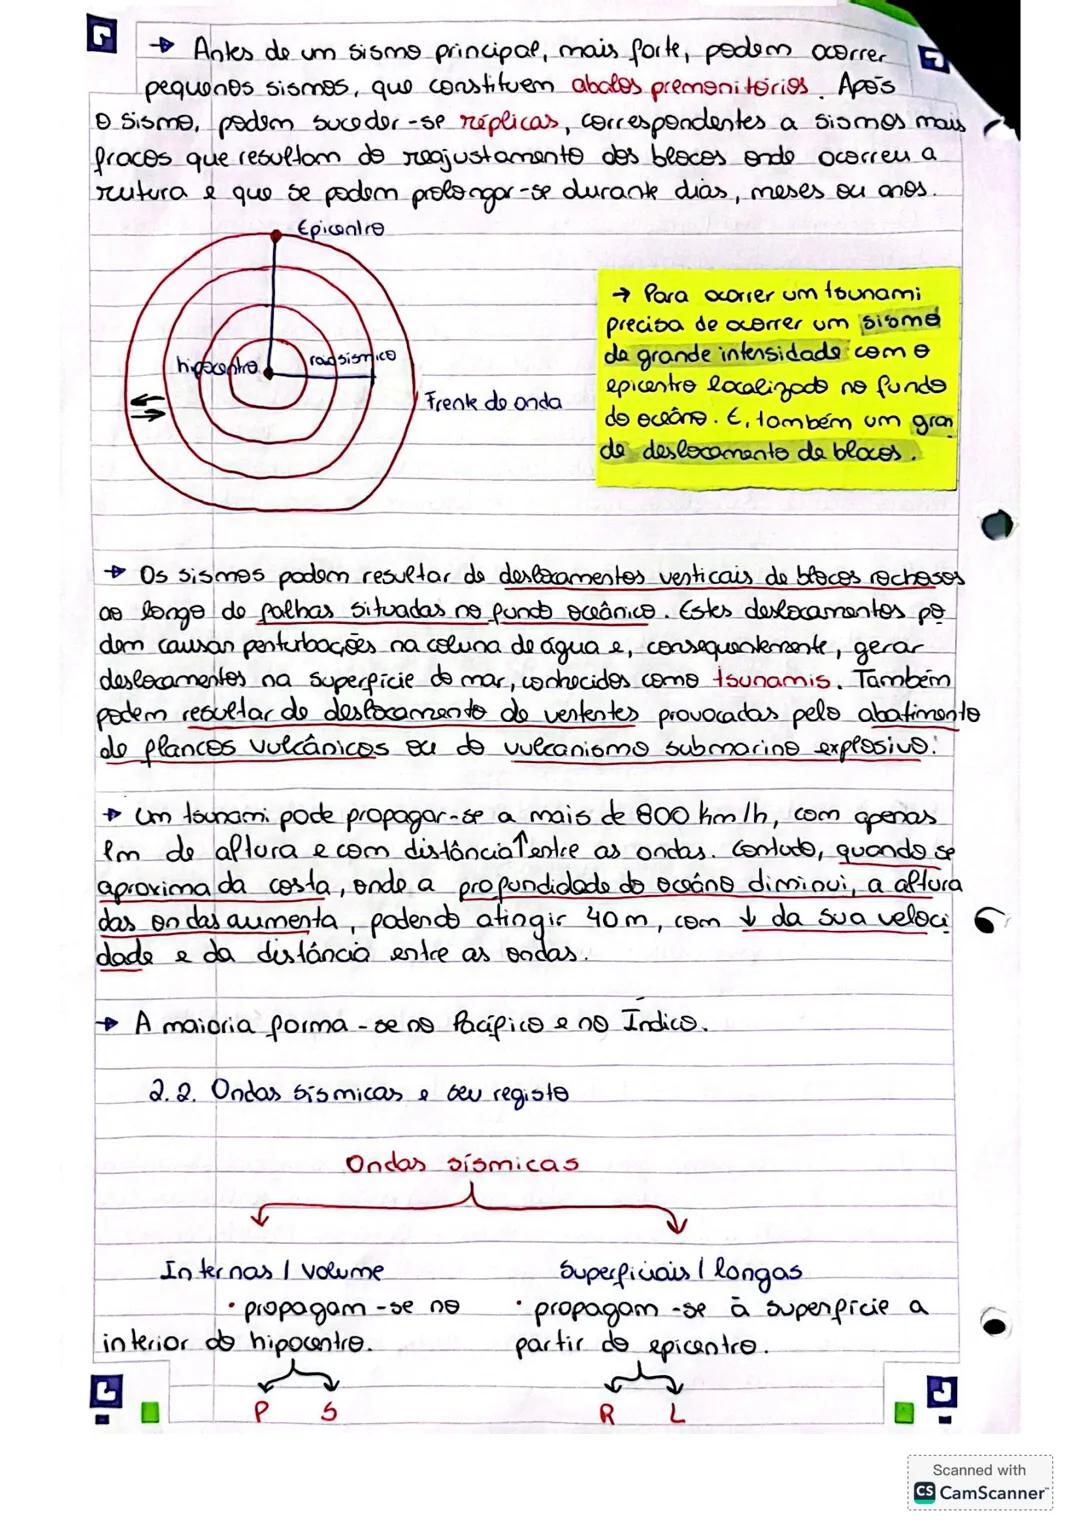 → Antes de um sismo principal, mais forte, podem ocorrer
pequenos sismos, que constituem abalos premonitórios. Após
o sismo, podem suceder-se réplicas, correspondentes a sismos mais
fracos que resultam do reajustamento dos blocos onde ocorreu a
rutura e que se podem prolongar-se durante dias, meses ou anos.
Epicentro
hipocentro
raio sísmico
Frente de onda
→ Para ocorrer um tsunami
precisa de ocorrer um sismo
de grande intensidade com o
epicentro localizado no fundo
do oceâno. E, também um gran
de deslocamento de blocos.
→ Os sismos podem resultar de deslocamentos verticais de blocos rochosos
ao longo de falhas situadas no fundo oceânico. Estes deslocamentos po
dem causar perturbações na coluna de água e, consequentemente, gerar
deslocamentos na superfície do mar, conhecidos como tsunamis. Também
podem resultar do deslocamento de vertentes provocadas pelo abatimento
de flancos vulcânicos ou do vulcanismo submarino explosivo.
→ Um tsunami pode propagar-se a mais de 800 km/h, com apenas
1m de altura e com distância ↑ entre as ondas. Contudo, quando se
aproxima da costa, onde a profundidade do oceâno diminui, a altura
das ondas aumenta, podendo atingir 40 m, com ↓ da sua veloci
dade e da distância entre as ondas.
→ A maioria forma-se no Pacífico e no Índico.
2.2. Ondas sísmicas e seu registo
Ondas sísmicas
Internas / volume
· propagam-se no
interior do hipocentro.
P S
Superficiais / longas
· propagam-se à superfície a
partir do epicentro.
R L
Scanned with
CS CamScanner